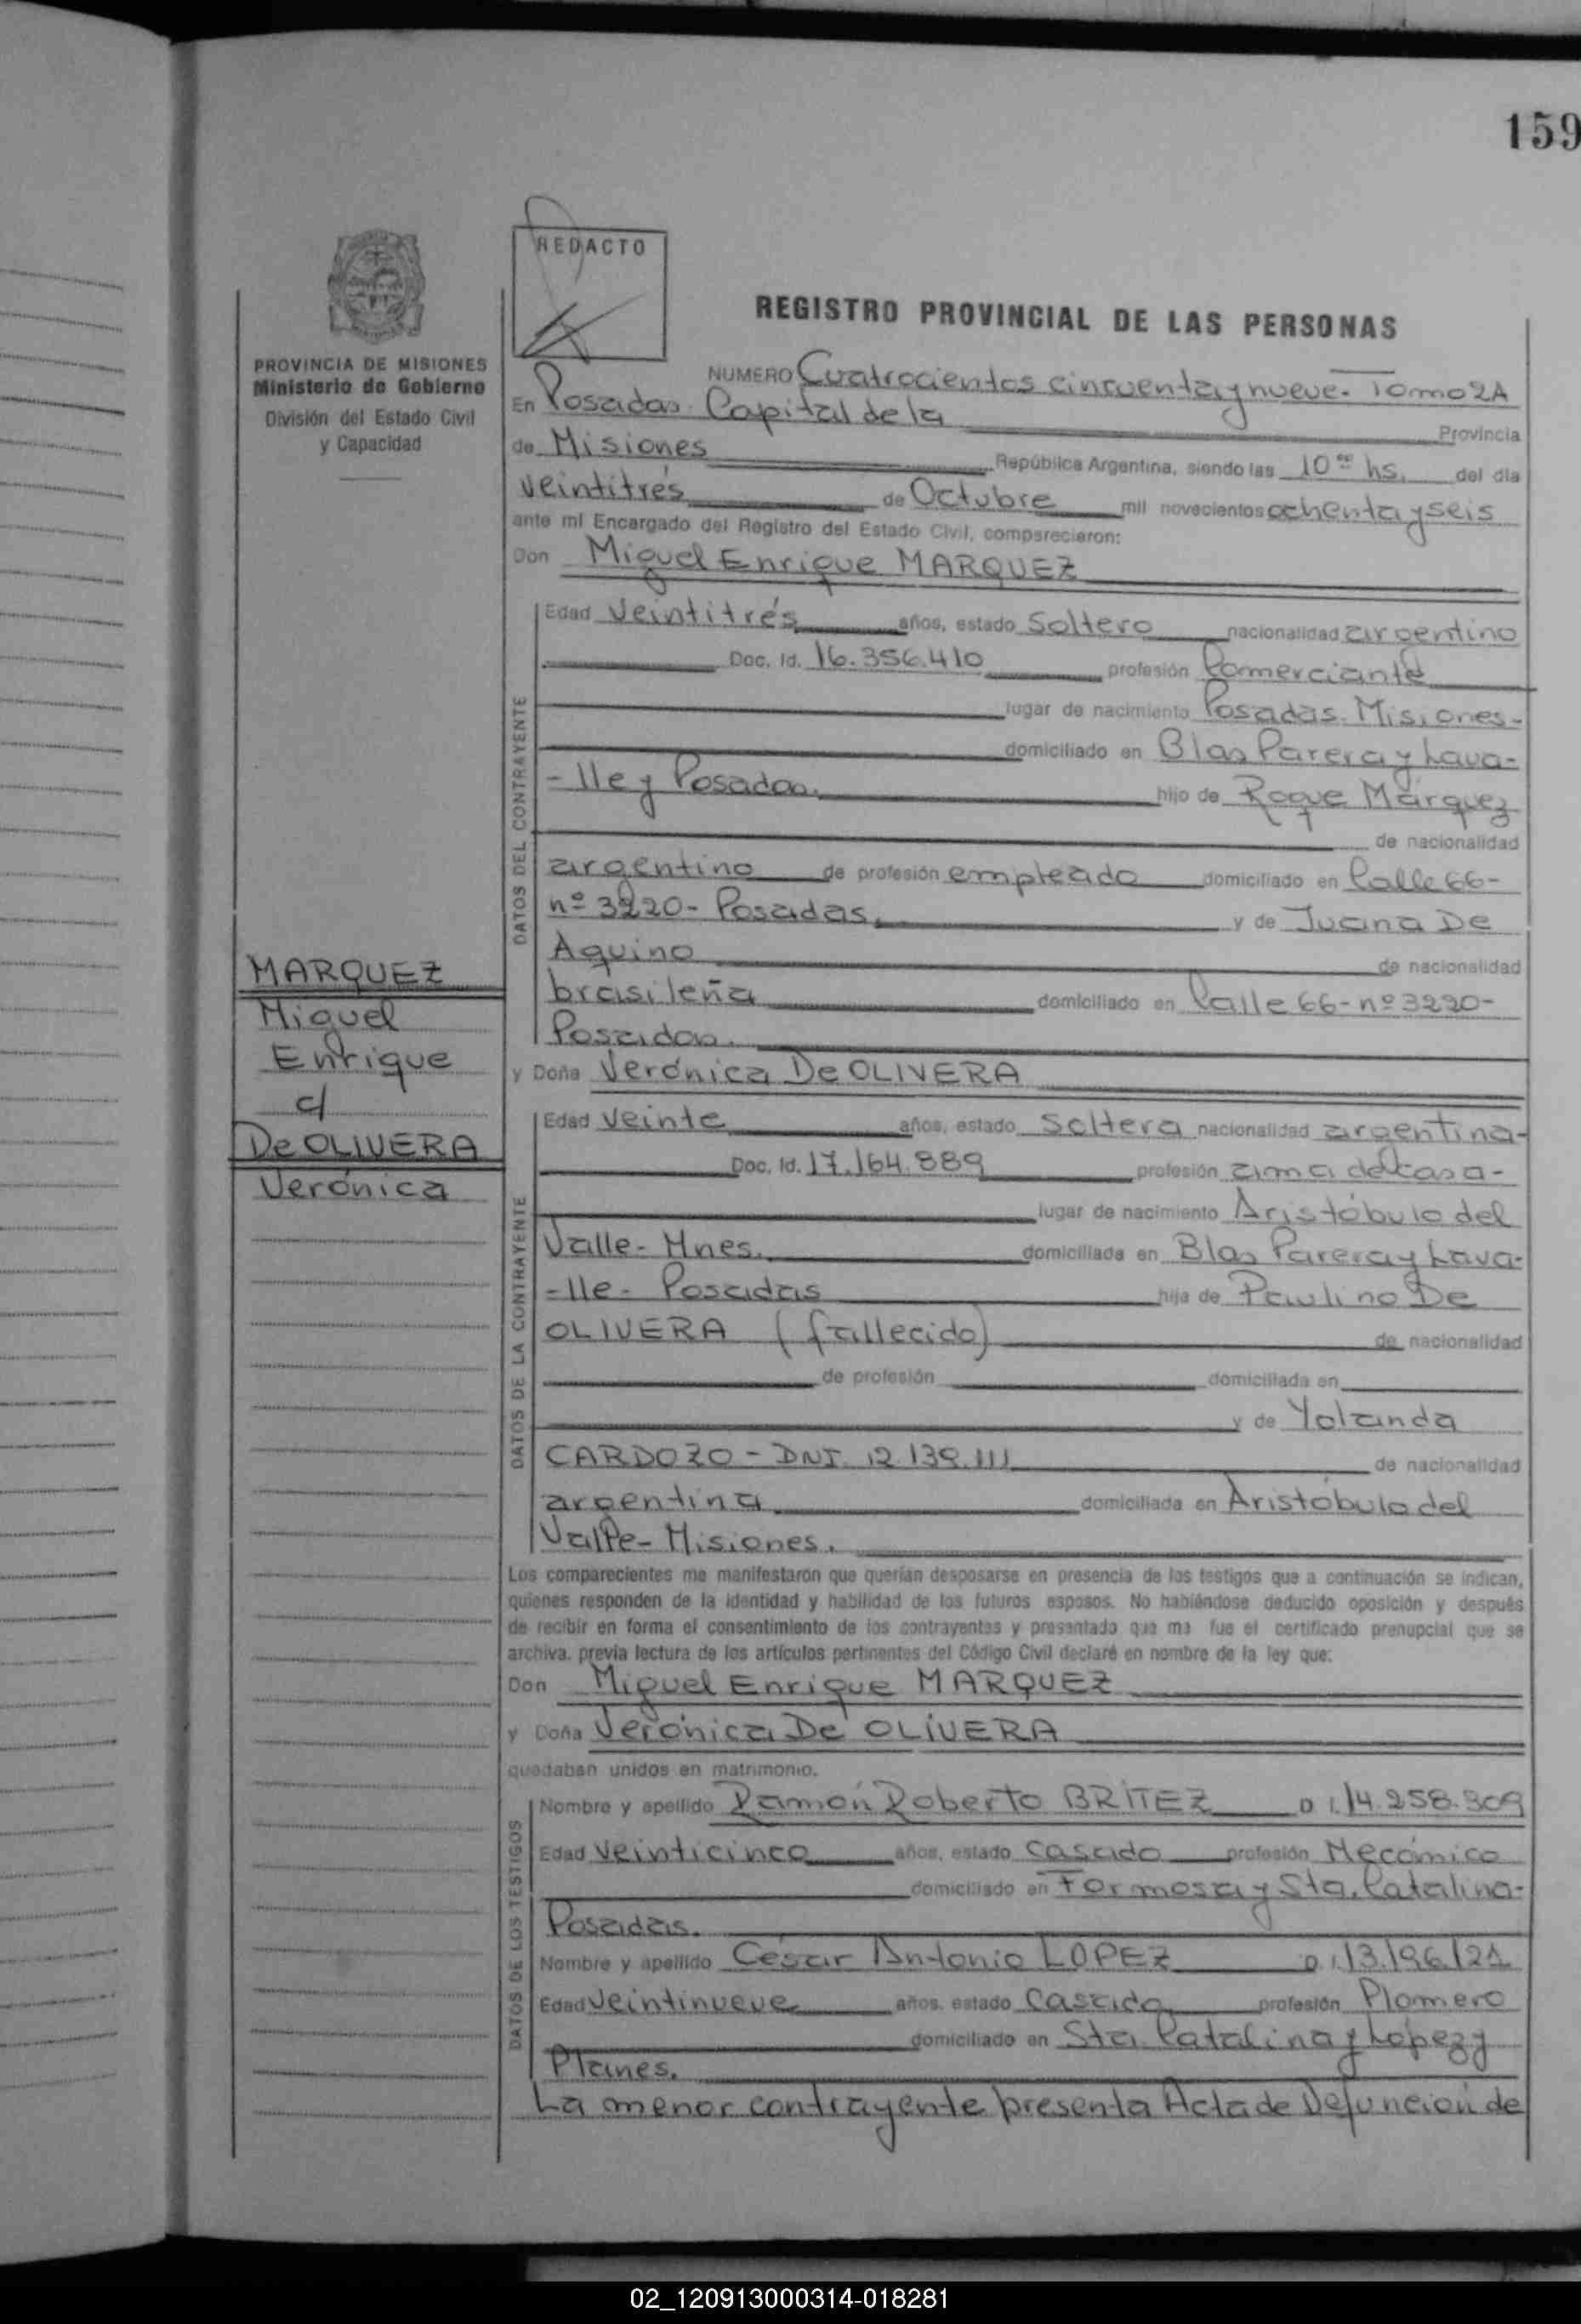 159
REDACTO
REGISTRO PROVINCIAL DE LAS PERSONAS
PROVINCIA DE MISIONES
Ministerio de Gobierno
División del Estado Civil
y Capacidad
NUMERO Cuatrocientos cincuenta y nueve. Tomo 2A
En Posadas. Capital de la Provincia
de Misiones República Argentina, siendo las 10 hs. del día
veintitrés de Octubre mil novecientos ochenta y seis
ante mí Encargado del Registro del Estado Civil, comparecieron:
Don Miguel Enrique MARQUEZ
DATOS DEL CONTRAYENTE
Edad Veintitrés años, estado Soltero nacionalidad argentino
Doc. Id. 16.356.410 profesión Comerciante
lugar de nacimiento Posadas. Misiones-
domiciliado en Blas Parera y Lava-
-lle y Posadas. hijo de Roque Márquez
de nacionalidad
argentino de profesión empleado domiciliado en Calle 66-
nº 3220- Posadas. y de Juana De
Aquino de nacionalidad
brasileña domiciliado en Calle 66-nº 3220-
Posadas.
MARQUEZ
Miguel
Enrique
c/
De OLIVERA
Verónica
y Doña Verónica De OLIVERA
DATOS DE LA CONTRAYENTE
Edad Veinte años, estado Soltera nacionalidad argentina-
Doc. Id. 17.164.889 profesión ama de casa-
lugar de nacimiento Aristóbulo del
Valle- Mnes. domiciliada en Blas Parera y Lava-
-lle- Posadas hija de Paulino De
OLIVERA (fallecido) de nacionalidad
de profesión domiciliada en
y de Yolanda
CARDOZO - DNI. 12.139.111 de nacionalidad
argentina domiciliada en Aristóbulo del
Valle- Misiones.
Los comparecientes me manifestaron que querían desposarse en presencia de los testigos que a continuación se indican,
quienes responden de la identidad y habilidad de los futuros esposos. No habiéndose deducido oposición y después
de recibir en forma el consentimiento de los contrayentes y presentado que me fue el certificado prenupcial que se
archiva. previa lectura de los artículos pertinentes del Código Civil declaré en nombre de la ley que:
Don Miguel Enrique MARQUEZ
y Doña Verónica De OLIVERA
quedaban unidos en matrimonio.
DATOS DE LOS TESTIGOS
Nombre y apellido Ramón Roberto BRITEZ D I. 14.258.309
Edad veinticinco años, estado casado profesión Mecánico
domiciliado en Formosa y Sta. Catalina-
Posadas.
Nombre y apellido César Antonio LOPEZ D I.
Edad Veintinueve años. estado Casado profesión Plomero
domiciliado en Sta. Catalina y López y
Planes.
La menor contrayente presenta Acta de Defunción de
02_120913000314-018281